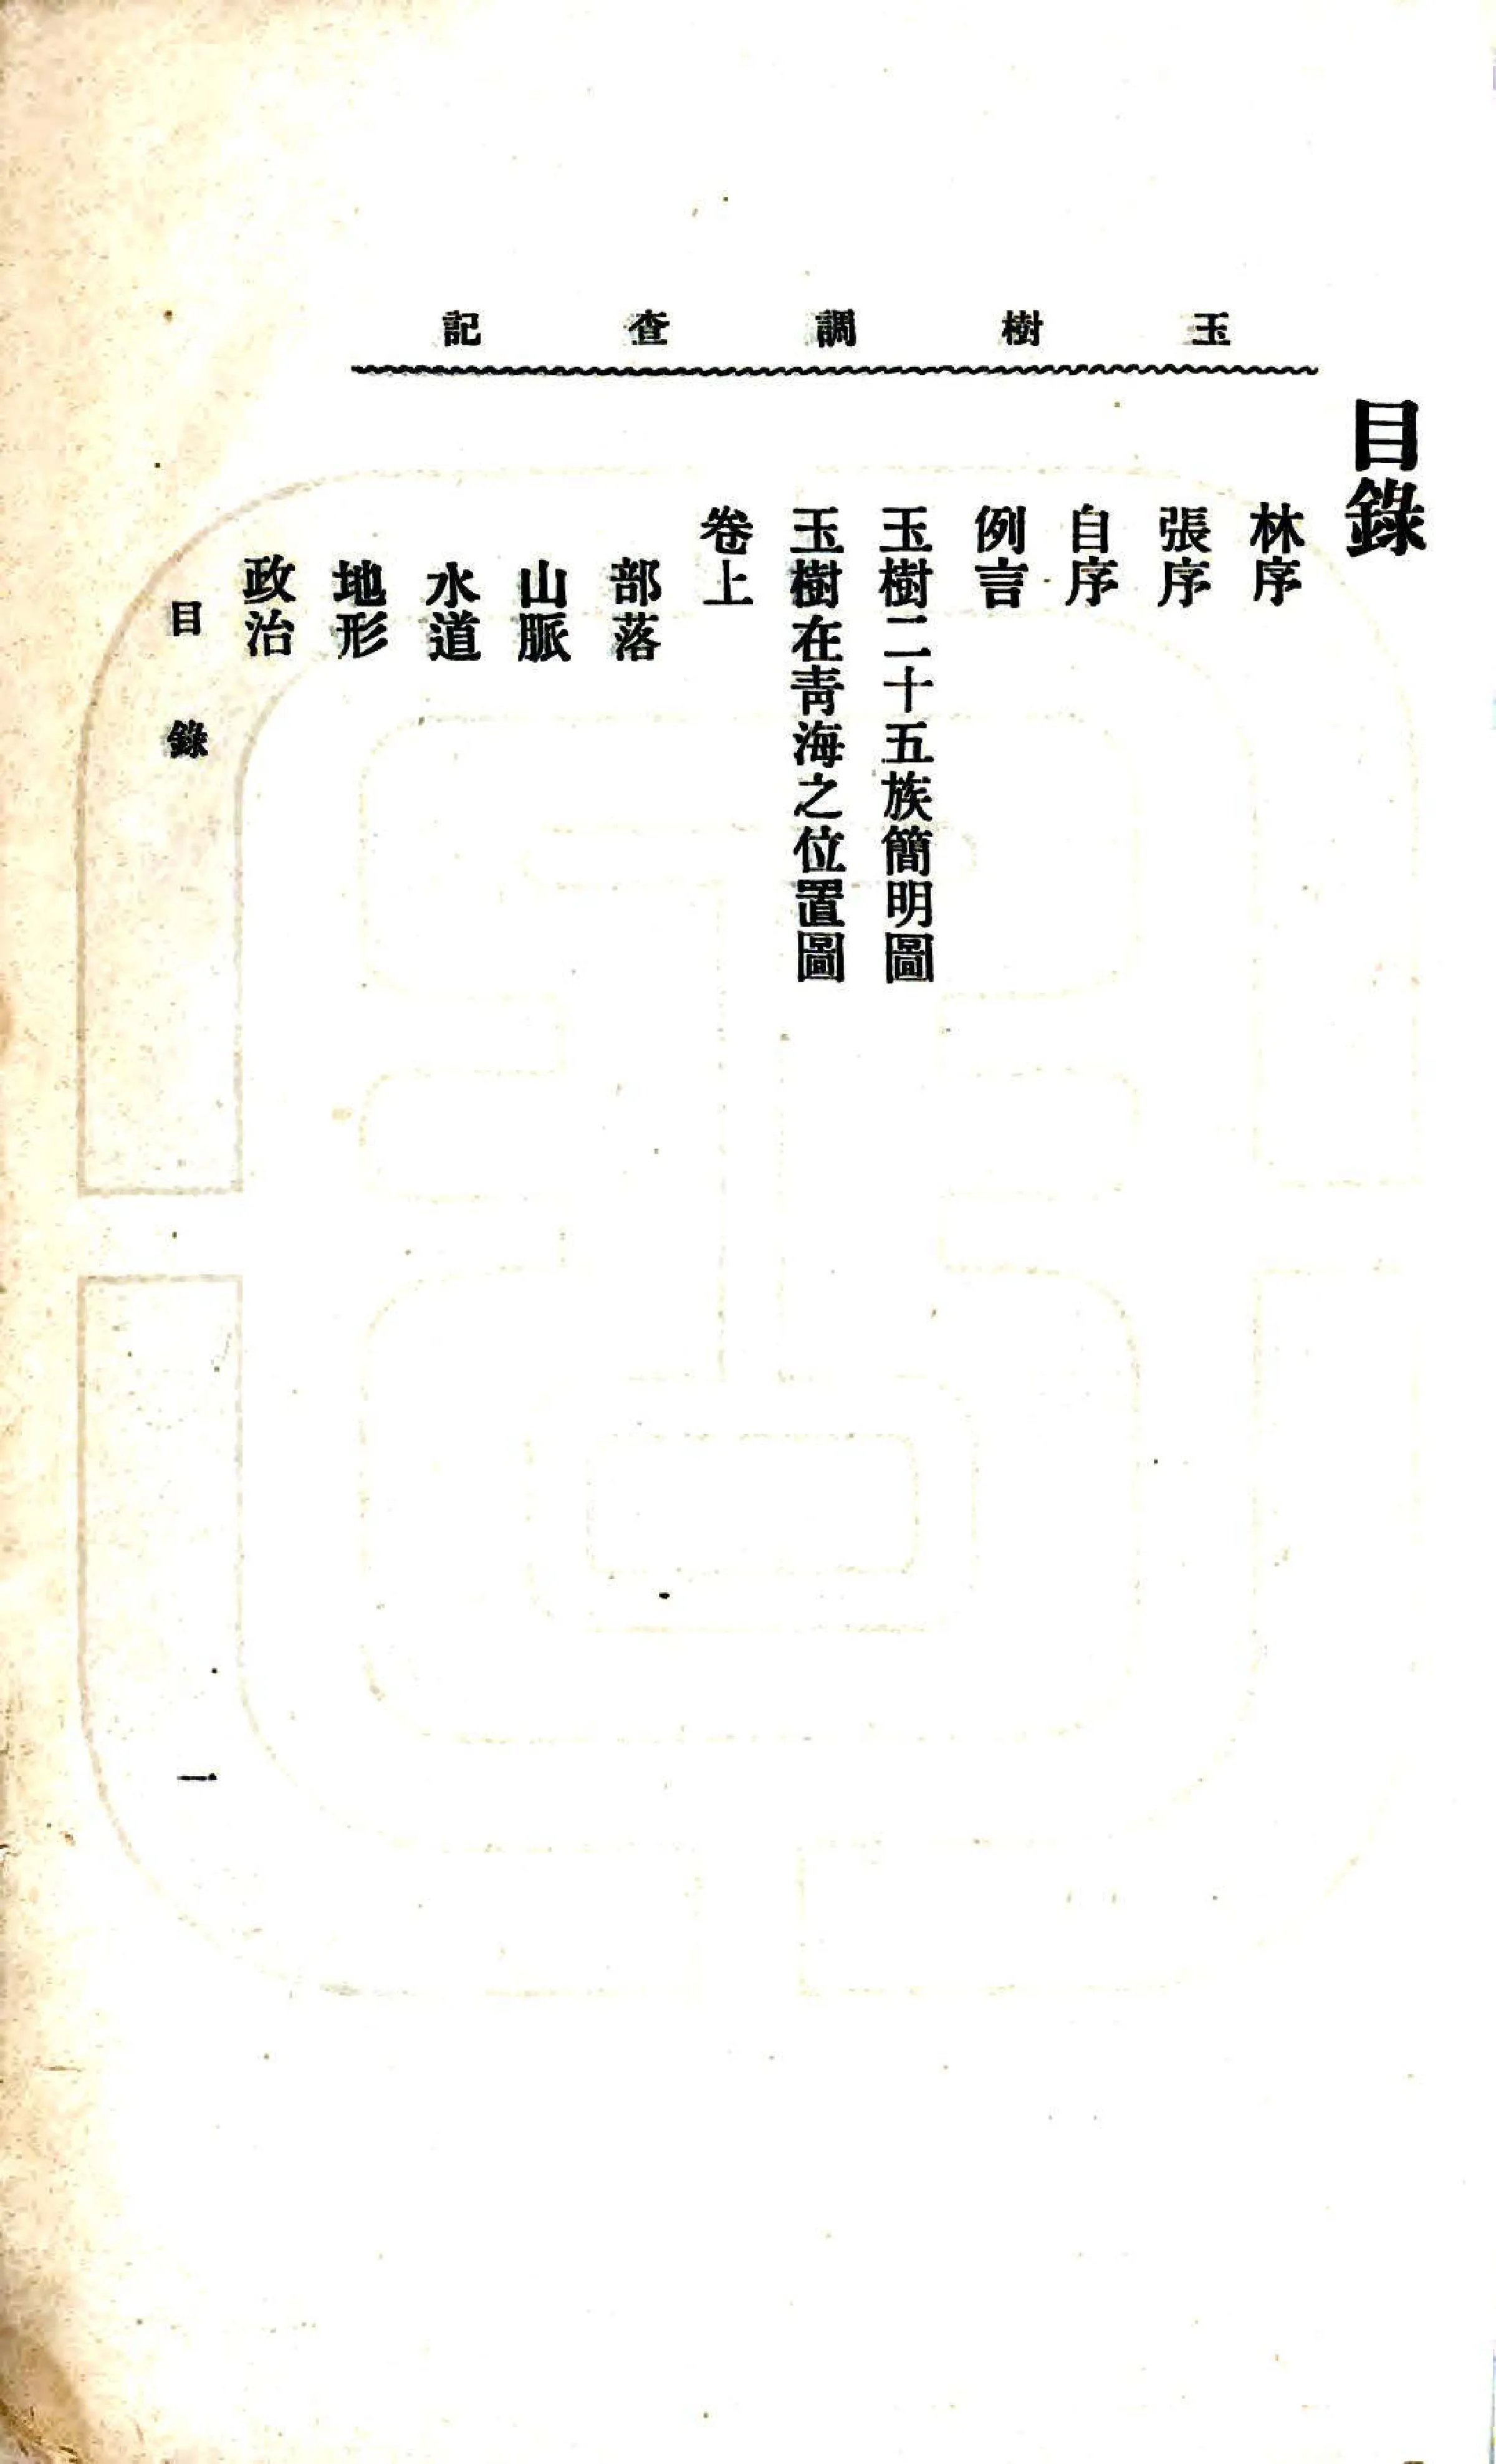 玉樹調查記
目錄
林序
張序
自序
例言
玉樹二十五族簡明圖
玉樹在靑海之位置圖
卷上
部落
山脈
水道
地形
政治
目錄
一